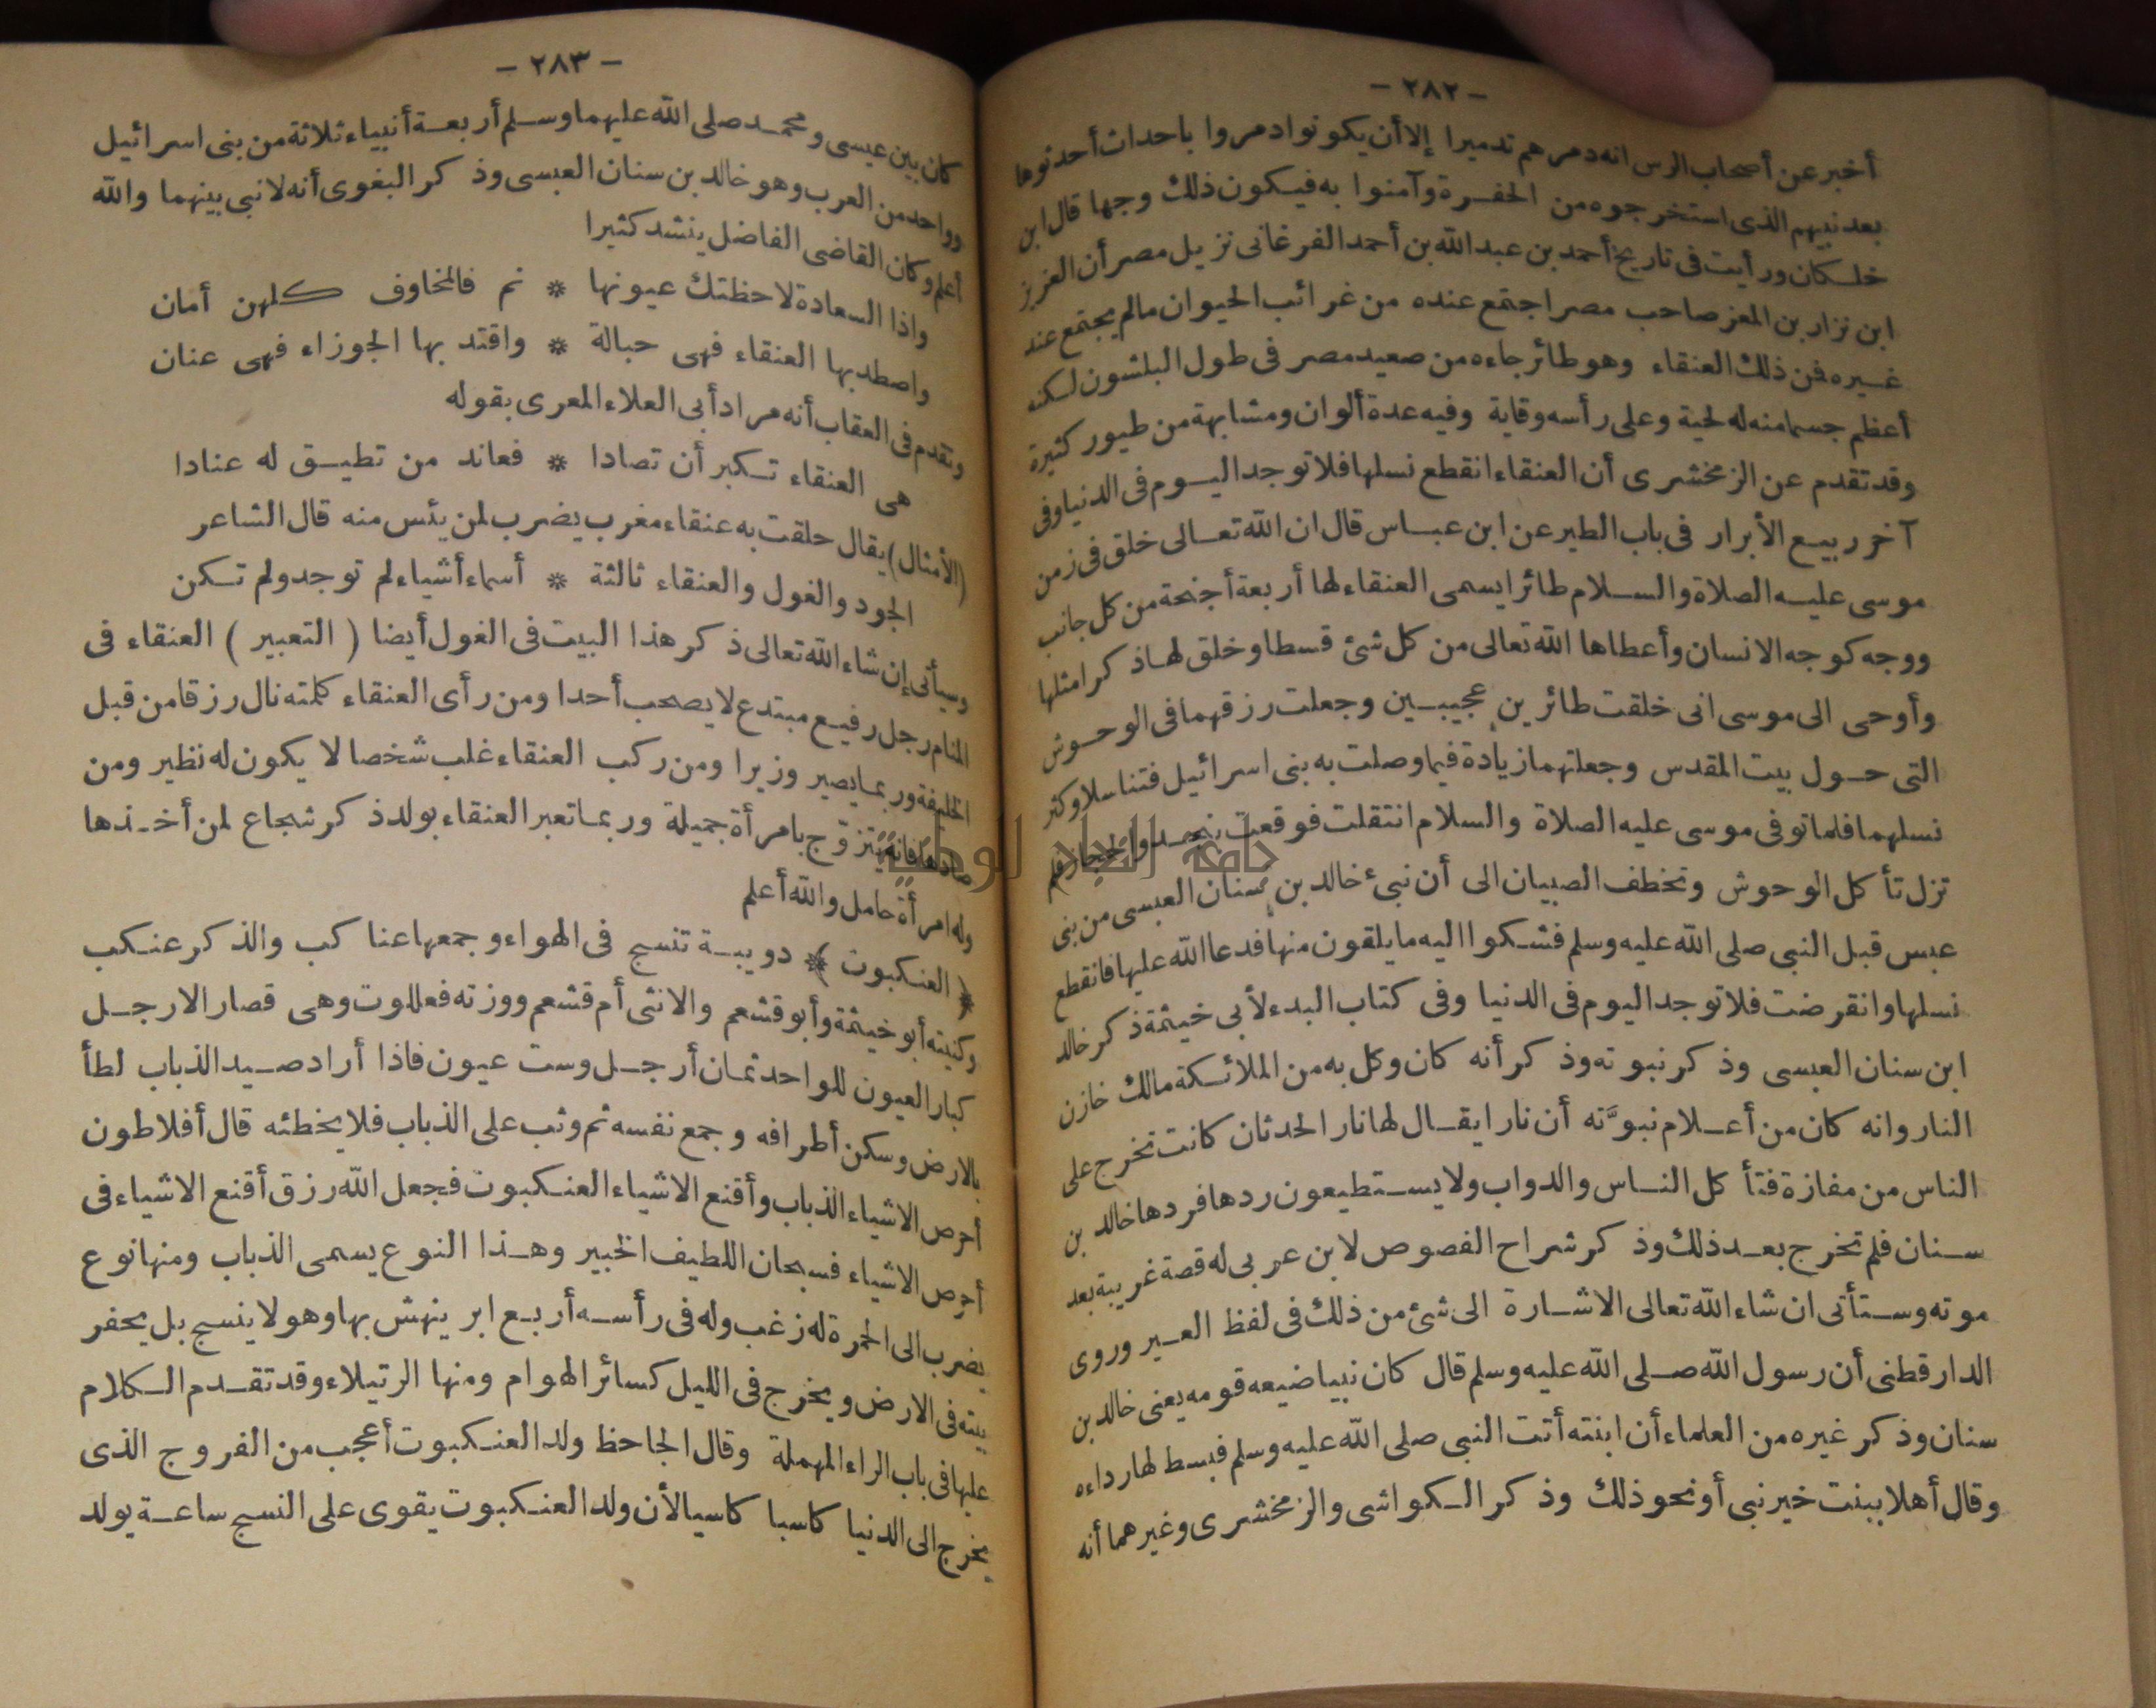 - ٢٨٢ -
أخبر عن أصحاب الرس انه دمرهم تدميرا إلا أن يكونوا دمروا باحداث أحدثوها
بعد نبيهم الذى استخرجوه من الحفرة وآمنوا به فيكون ذلك وجها قال ابن
خلكان ورأيت فى تاريخ أحمد بن عبد الله بن أحمد الفرغانى نزيل مصر أن العزيز
ابن نزار بن المعز صاحب مصر اجتمع عنده من غرائب الحيوان ما لم يجتمع عند
غيره فمن ذلك العنقاء وهو طائر جاءه من صعيد مصر فى طول البلشون لكنه
أعظم جسما منه له لحية وعلى رأسه وقاية وفيه عدة ألوان ومشابهة من طيور كثيرة
وقد تقدم عن الزمخشرى أن العنقاء انقطع نسلها فلا توجد اليوم فى الدنيا وفى
آخر ربيع الأبرار فى باب الطير عن ابن عباس قال ان الله تعالى خلق فى زمن
موسى عليه الصلاة والسلام طائرا يسمى العنقاء لها أربعة أجنحة من كل جانب
ووجه كوجه الانسان وأعطاها الله تعالى من كل شئ قسطا وخلق لها ذكرا مثلها
وأوحى الى موسى انى خلقت طائرين عجيبين وجعلت رزقهما فى الوحوش
التى حول بيت المقدس وجعلتهما زيادة فيما وصلت به بنى اسرائيل فتناسلا وكثر
نسلهما فلما توفى موسى عليه الصلاة والسلام انتقلت فوقعت بنجد والحجاز فلم
تزل تأكل الوحوش وتخطف الصبيان الى أن نبئ خالد بن سنان العبسى من بنى
عبس قبل النبى صلى الله عليه وسلم فشكوا اليه ما يلقون منها فدعا الله عليها فانقطع
نسلها وانقرضت فلا توجد اليوم فى الدنيا وفى كتاب البدء لأبى خيثمة ذكر خالد
ابن سنان العبسى وذكر نبوته وذكر أنه كان وكل به من الملائكة مالك خازن
النار وانه كان من أعلام نبوَّته أن نارا يقال لها نار الحدثان كانت تخرج على
الناس من مفازة فتأكل الناس والدواب ولا يستطيعون ردها فردها خالد بن
سنان فلم تخرج بعد ذلك وذكر شراح الفصوص لابن عربى له قصة غريبة بعد
موته وستأتى ان شاء الله تعالى الاشارة الى شئ من ذلك فى لفظ العير وروى
الدارقطنى أن رسول الله صلى الله عليه وسلم قال كان نبيا ضيعه قومه يعنى خالد بن
سنان وذكر غيره من العلماء أن ابنته أتت النبى صلى الله عليه وسلم فبسط لها رداءه
وقال أهلا ببنت خير نبى أو نحو ذلك وذكر الكواشى والزمخشرى وغيرهما أنه
- ٢٨٣ -
كان بين عيسى ومحمد صلى الله عليهما وسلم أربعة أنبياء ثلاثة من بنى اسرائيل
وواحد من العرب وهو خالد بن سنان العبسى وذكر البغوى أنه لا نبى بينهما والله
أعلم وكان القاضى الفاضل ينشد كثيرا
واذا السعادة لاحظتك عيونها * نم فالمخاوف كلهن أمان
واصطد بها العنقاء فهى حبالة * واقتد بها الجوزاء فهى عنان
وتقدم فى العقاب أنه مراد أبى العلاء المعرى بقوله
هى العنقاء تكبر أن تصادا * فعاند من تطيق له عنادا
(الأمثال) يقال حلقت به عنقاء مغرب يضرب لمن يئس منه قال الشاعر
الجود والغول والعنقاء ثالثة * أسماء أشياء لم توجد ولم تكن
وسيأتى إن شاء الله تعالى ذكر هذا البيت فى الغول أيضا ( التعبير ) العنقاء فى
المنام رجل رفيع مبتدع لا يصحب أحدا ومن رأى العنقاء كلمته نال رزقا من قبل
الخليفة وربما يصير وزيرا ومن ركب العنقاء غلب شخصا لا يكون له نظير ومن
صادها فانه يتزوّج بامرأة جميلة وربما تعبر العنقاء بولد ذكر شجاع لمن أخذها
وله امرأة حامل والله أعلم
﴿ العنكبوت ﴾ دويبة تنسج فى الهواء وجمعها عناكب والذكر عنكب
وكنيته أبو خيثمة وأبو قشعم والانثى أم قشعم ووزته فعللوت وهى قصار الارجل
كبار العيون للواحد ثمان أرجل وست عيون فاذا أراد صيد الذباب لطأ
بالارض وسكن أطرافه وجمع نفسه ثم وثب على الذباب فلا يخطئه قال أفلاطون
أحرص الاشياء الذباب وأقنع الاشياء العنكبوت فجعل الله رزق أقنع الاشياء فى
أحرص الاشياء فسبحان اللطيف الخبير وهذا النوع يسمى الذباب ومنها نوع
يضرب الى الحمرة له زغب وله فى رأسه أربع ابر ينهش بها وهو لا ينسج بل يحفر
بيته فى الارض ويخرج فى الليل كسائر الهوام ومنها الرتيلاء وقد تقدم الكلام
عليها فى باب الراء المهملة وقال الجاحظ ولد العنكبوت أعجب من الفروج الذى
يخرج الى الدنيا كاسبا كاسيا لأن ولد العنكبوت يقوى على النسج ساعة يولد
جامعة النجاح الوطنية